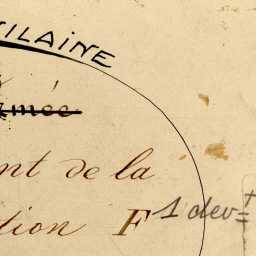 ILAINE
nt de la
tion F
1 dev=